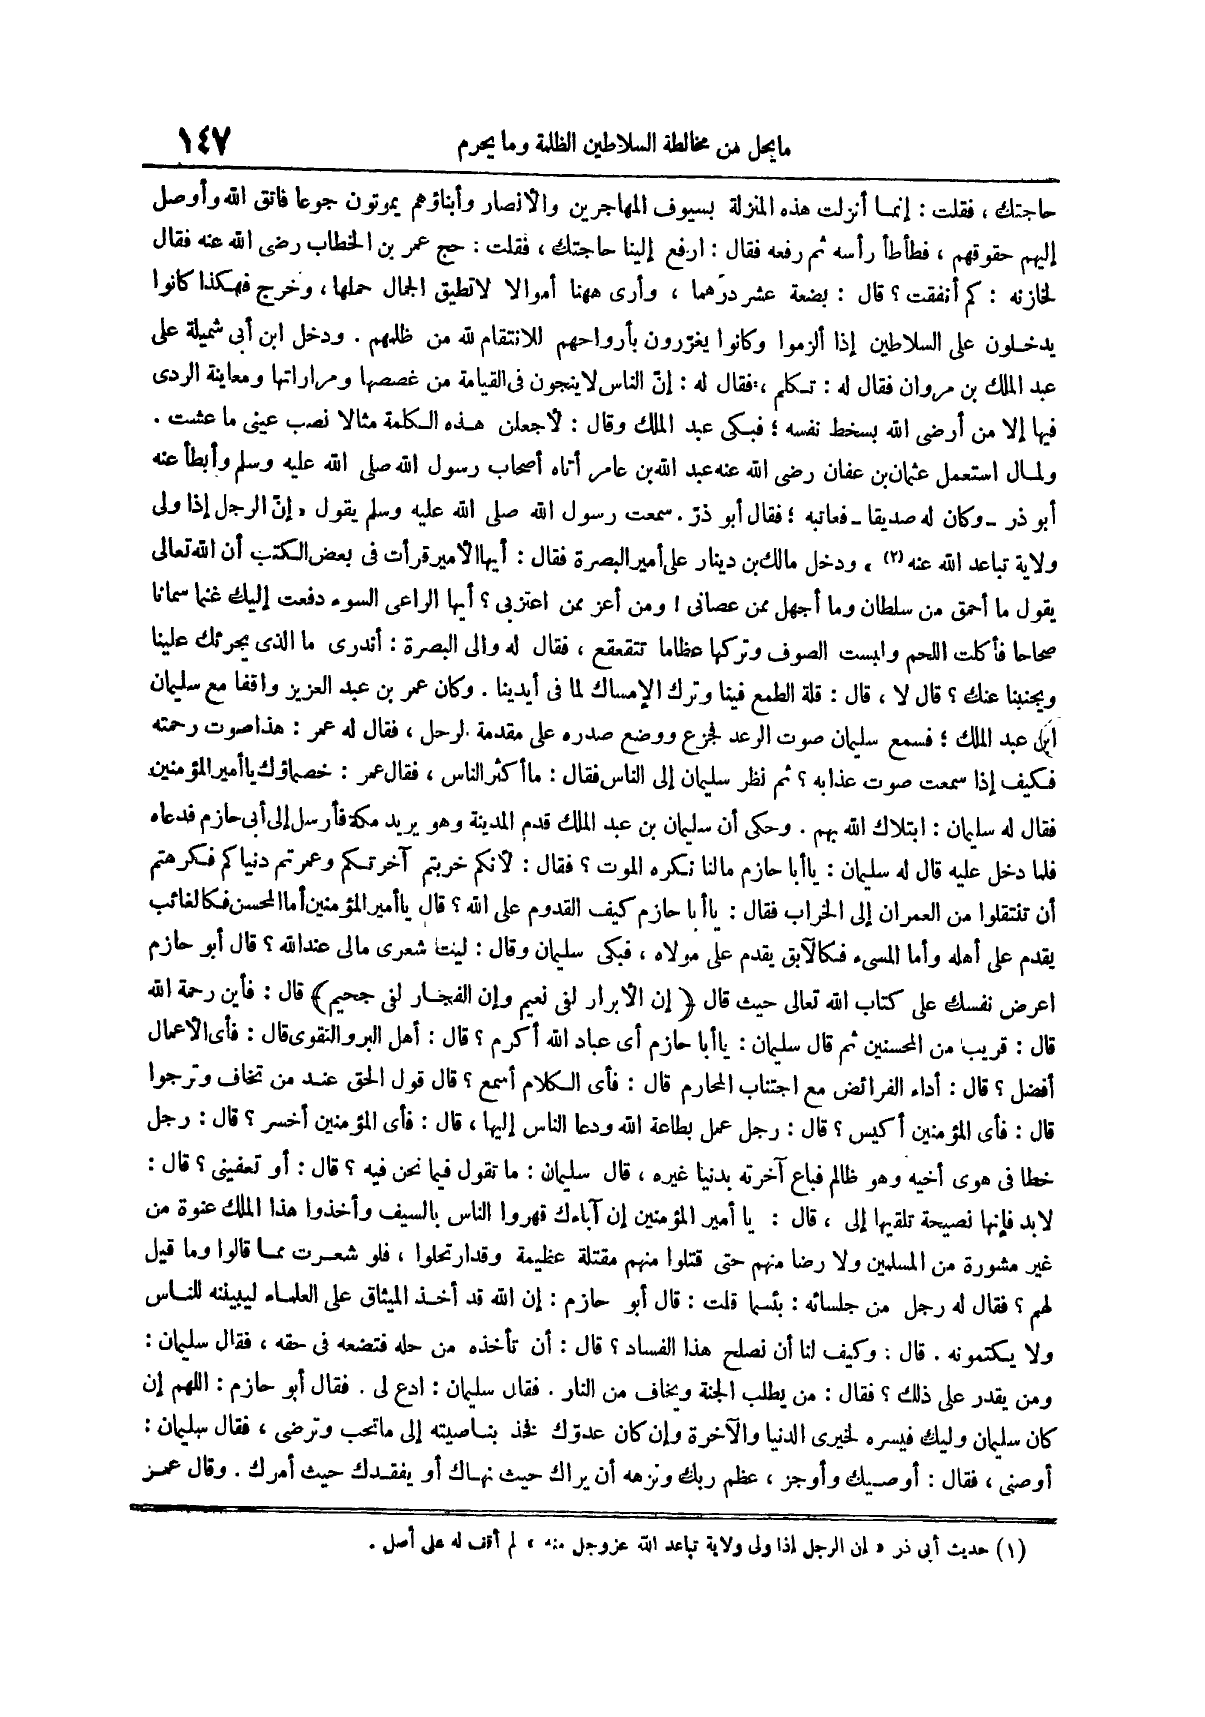 ما يحل من مخالطة السلاطين الظلمة وما يحرم ١٤٧
حاجتك ، فقلت : إنمـا أنزلت هذه المنزلة بسيوف المهاجرين والأنصار وأبناؤهم يموتون جوعا فاتق الله وأوصل
إليهم حقوقهم ، فطأطأ رأسه ثم رفعه فقال : ارفع إلينا حاجتك ، فقلت : حج عمر بن الخطاب رضى الله عنه فقال
لخازنه : كم أنفقت ؟ قال : بضعة عشر درهما ، وأرى ههنا أموالا لاتطيق الجمال حملها ، وخرج فهكذا كانوا
يدخلون على السلاطين إذا ألزموا وكانوا يغرّرون بأرواحهم للانتقام لله من ظلمهم . ودخل ابن أبى شميلة على
عبد الملك بن مروان فقال له : تكلم ، فقال له : إنّ الناس لاينجون فى القيامة من غصصها ومراراتها ومعاينة الردى
فيها إلا من أرضى الله بسخط نفسه ؛ فبكى عبد الملك وقال : لأجعلن هذه الكلمة مثالا نصب عينى ما عشت .
ولمـال استعمل عثمان بن عفان رضى الله عنه عبد الله بن عامر أتاه أصحاب رسول الله صلى الله عليه وسلم وأبطأ عنه
أبو ذر ـ وكان له صديقا ـ فعاتبه ؛ فقال أبو ذرّ . سمعت رسول الله صلى الله عليه وسلم يقول « إنّ الرجل إذا ولى
ولاية تباعد الله عنه (٢) » ودخل مالك بن دينار على أمير البصرة فقال : أيها الأمير قرأت فى بعض الكتب أن الله تعالى
يقول ما أحمق من سلطان وما أجهل ممن عصانى ! ومن أعز ممن اعتزبى ؟ أيها الراعى السوء دفعت إليك غنما سمانا
صحاحا فأكلت اللحم ولبست الصوف وتركتها عظاما تتقعقع ، فقال له والى البصرة : أتدرى ما الذى يجرئك علينا
ويجنبنا عنك ؟ قال لا ، قال : قلة الطمع فينا وترك الإمساك لما فى أيدينا . وكان عمر بن عبد العزيز واقفا مع سليمان
ابن عبد الملك ؛ فسمع سليمان صوت الرعد فجزع ووضع صدره على مقدمة الرحل ، فقال له عمر : هذا صوت رحمته
فكيف إذا سمعت صوت عذابه ؟ ثم نظر سليمان إلى الناس فقال : ما أكثر الناس ، فقال عمر : خصماؤك يا أمير المؤمنين
فقال له سليمان : ابتلاك الله بهم . وحكى أن سليمان بن عبد الملك قدم المدينة وهو يريد مكة فأرسل إلى أبى حازم فدعاه
فلما دخل عليه قال له سليمان : يا أبا حازم مالنا نكره الموت ؟ فقال : لأنكم خربتم آخرتكم وعمرتم دنياكم فكرهتم
أن تنتقلوا من العمران إلى الخراب فقال : يا أبا حازم كيف القدوم على الله ؟ قال يا أمير المؤمنين أما المحسن فكالغائب
يقدم على أهله وأما المسىء فكالآبق يقدم على مولاه ، فبكى سليمان وقال : ليت شعرى مالى عند الله ؟ قال أبو حازم
اعرض نفسك على كتاب الله تعالى حيث قال ﴿ إن الأبرار لفى نعيم وإن الفجار لفى جحيم ﴾ قال : فأين رحمة الله
قال : قريب من المحسنين ثم قال سليمان : يا أبا حازم أى عباد الله أكرم ؟ قال : أهل البر والتقوى قال : فأى الأعمال
أفضل ؟ قال : أداء الفرائض مع اجتناب المحارم قال : فأى الكلام أسمع ؟ قال قول الحق عند من تخاف وترجوا
قال : فأى المؤمنين أكيس ؟ قال : رجل عمل بطاعة الله ودعا الناس إليها ، قال : فأى المؤمنين أخسر ؟ قال : رجل
خطا فى هوى أخيه وهو ظالم فباع آخرته بدنيا غيره ، قال سليمان : ما تقول فيما نحن فيه ؟ قال : أو تعفينى ؟ قال :
لابد فإنها نصيحة تلقيها إلى ، قال : يا أمير المؤمنين إن آباءك قهروا الناس بالسيف وأخذوا هذا الملك عنوة من
غير مشورة من المسلمين ولا رضا منهم حتى قتلوا منهم مقتلة عظيمة وقدارتحلوا ، فلو شعرت بمـا قالوا وما قيل
لهم ؟ فقال له رجل من جلسائه : بئسما قلت : قال أبو حازم : إن الله قد أخذ الميثاق على العلماء ليبيننه للناس
ولا يكتمونه . قال : وكيف لنا أن نصلح هذا الفساد ؟ قال : أن تأخذه من حله فتضعه فى حقه ، فقال سليمان :
ومن يقدر على ذلك ؟ فقال : من يطلب الجنة ويخاف من النار . فقال سليمان : ادع لى . فقال أبو حازم : اللهم إن
كان سليمان وليك فيسره لخيرى الدنيا والآخرة وإن كان عدوّك فخذ بناصيته إلى ماتحب وترضى ، فقال سليمان :
أوصنى ، فقال : أوصيك وأوجز ، عظم ربك ونزهه أن يراك حيث نهاك أو يفقدك حيث أمرك . وقال عمر
(١) حديث أبى ذر « إن الرجل إذا ولى ولاية تباعد الله عزوجل منه » لم أقف له على أصل .